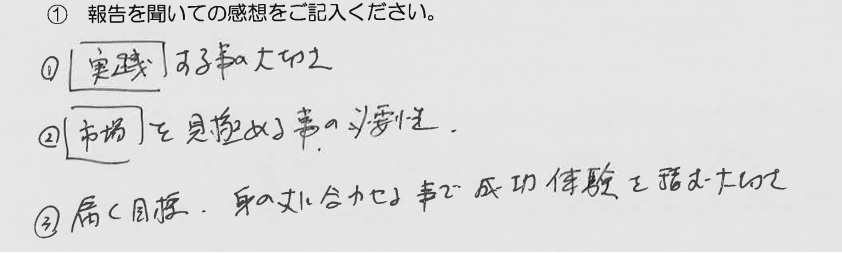 ① 報告を聞いての感想をご記入ください。
① 「実践」する事の大切さ
② 「市場」を見極める事の必要性.
③ 届く目標. 身の丈に合わせる事で成功体験を積む大切さ